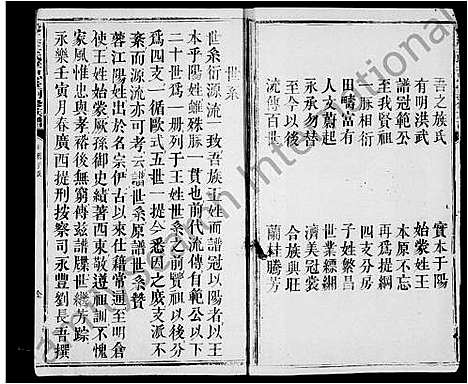 吾之族氏　實本于陽
有明洪武　始蒙姓王
譜冠範公　本原不忘
至我賢祖　再爲提綱
一脈相衍　四支分房
田疇富有　子姓繁昌
人文蔚起　世業縹緗
永承勿替　濟美冠裳
至今以後　合族興旺
流傳百世　蘭桂騰芳
世系
世系衍源流一致吾族王姓而譜冠以陽者以王
本乎陽姓雖殊脈一貫也前代流傳自範公以下
二十世爲一册列于王姓世系之前賢祖以後分
爲四支一循歐式五世一提今悉因之庶支派不
紊而源流亦可考云譜世系原譜世系贊
蓉江陽姓出於名宗伊古以來仕藉常通至明倉
使王姓始蒙厥孫御史績著西東敬遵祖訓不愧
家風惟忠與孝裕後無窮傳茲譜牒世繼芳踪
永樂壬寅月春廣西提刑按察司永豐劉長吾撰